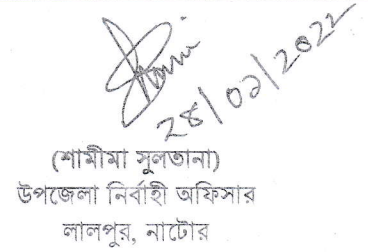 28/02/2022
(শামীমা সুলতানা)
উপজেলা নির্বাহী অফিসার
লালপুর, নাটোর